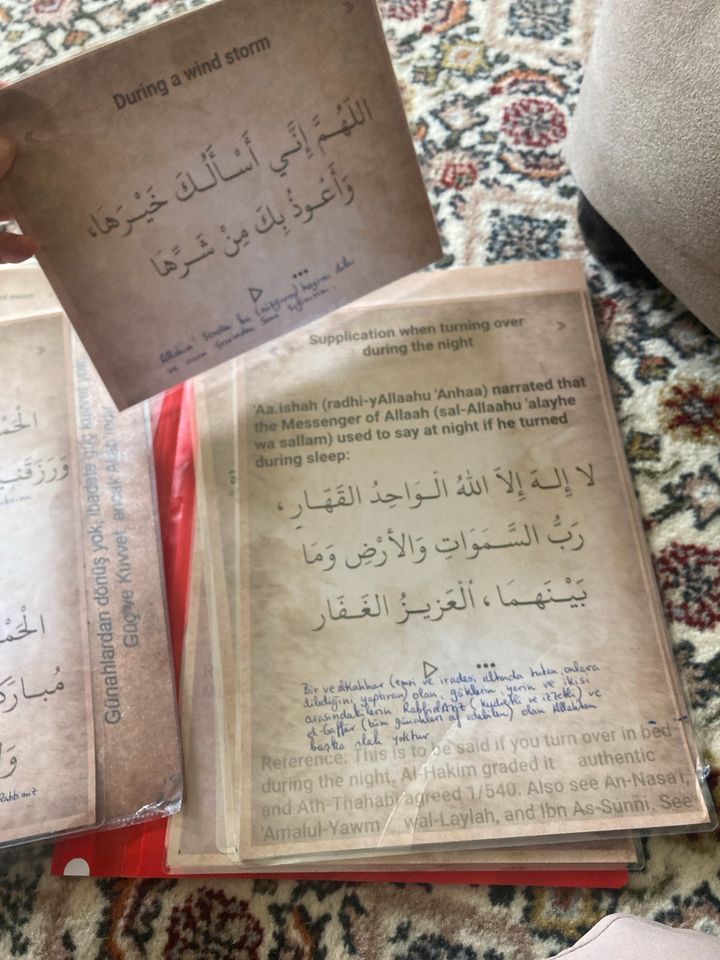 During a wind storm
اللَّهُمَّ إِنَّي أَسْأَلُكَ خَيْرَهَا،
وَأَعُوذُ بِكَ مِنْ شَرِّهَا
Allahım! Senden bu (rüzgarın) hayrını diler
ve onun şerrinden Sana sığınırım.
Supplication when turning over
during the night
'Aa.ishah (radhi-yAllaahu 'Anhaa) narrated that
the Messenger of Allaah (sal-Allaahu 'alayhe
wa sallam) used to say at night if he turned
during sleep:
لا إِلَهَ إِلاَّ اللهُ الْوَاحِدُ القَهّارِ،
رَبُّ السَّمَوَاتِ وَالأرْضِ وَمَا
بَيْنَهُمَا، ألْعَزِيزُ الغَفَّار
Bir ve elKahhar (emri ve iradesi altında tutan, onlara
dilediğini yaptıran) olan, göklerin, yerin ve ikisi
arasındakilerin Rabbi, elAziz (kudretli ve izzetli) ve
el-Gaffar (tüm günahları af edebilen) olan Allahtan
başka ilah yoktur
Reference: This is to be said if you turn over in bed
during the night, Al-Hakim graded it authentic
and Ath-Thahabi agreed 1/540. Also see An-Nasa'i,
'Amalul-Yawm wal-Laylah, and Ibn As-Sunni. See
Günahlardan dönüş yok, ibadete güç kuvvet yok
Güç ve Kuvvet ancak Allah'ındır
وَرَزَقَنِي
مُبارَك